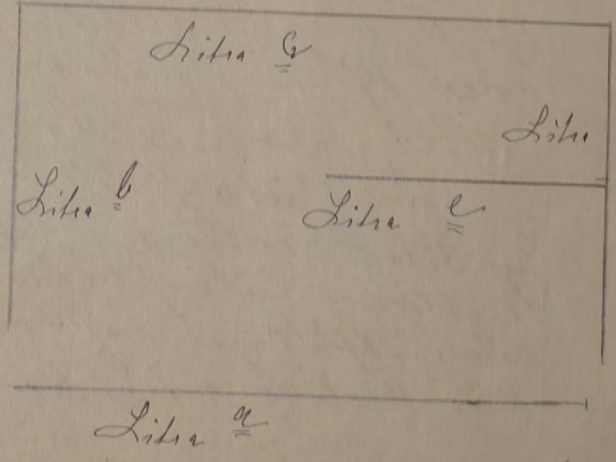 Litra c
Litra
Litra b
Litra e
Litra a